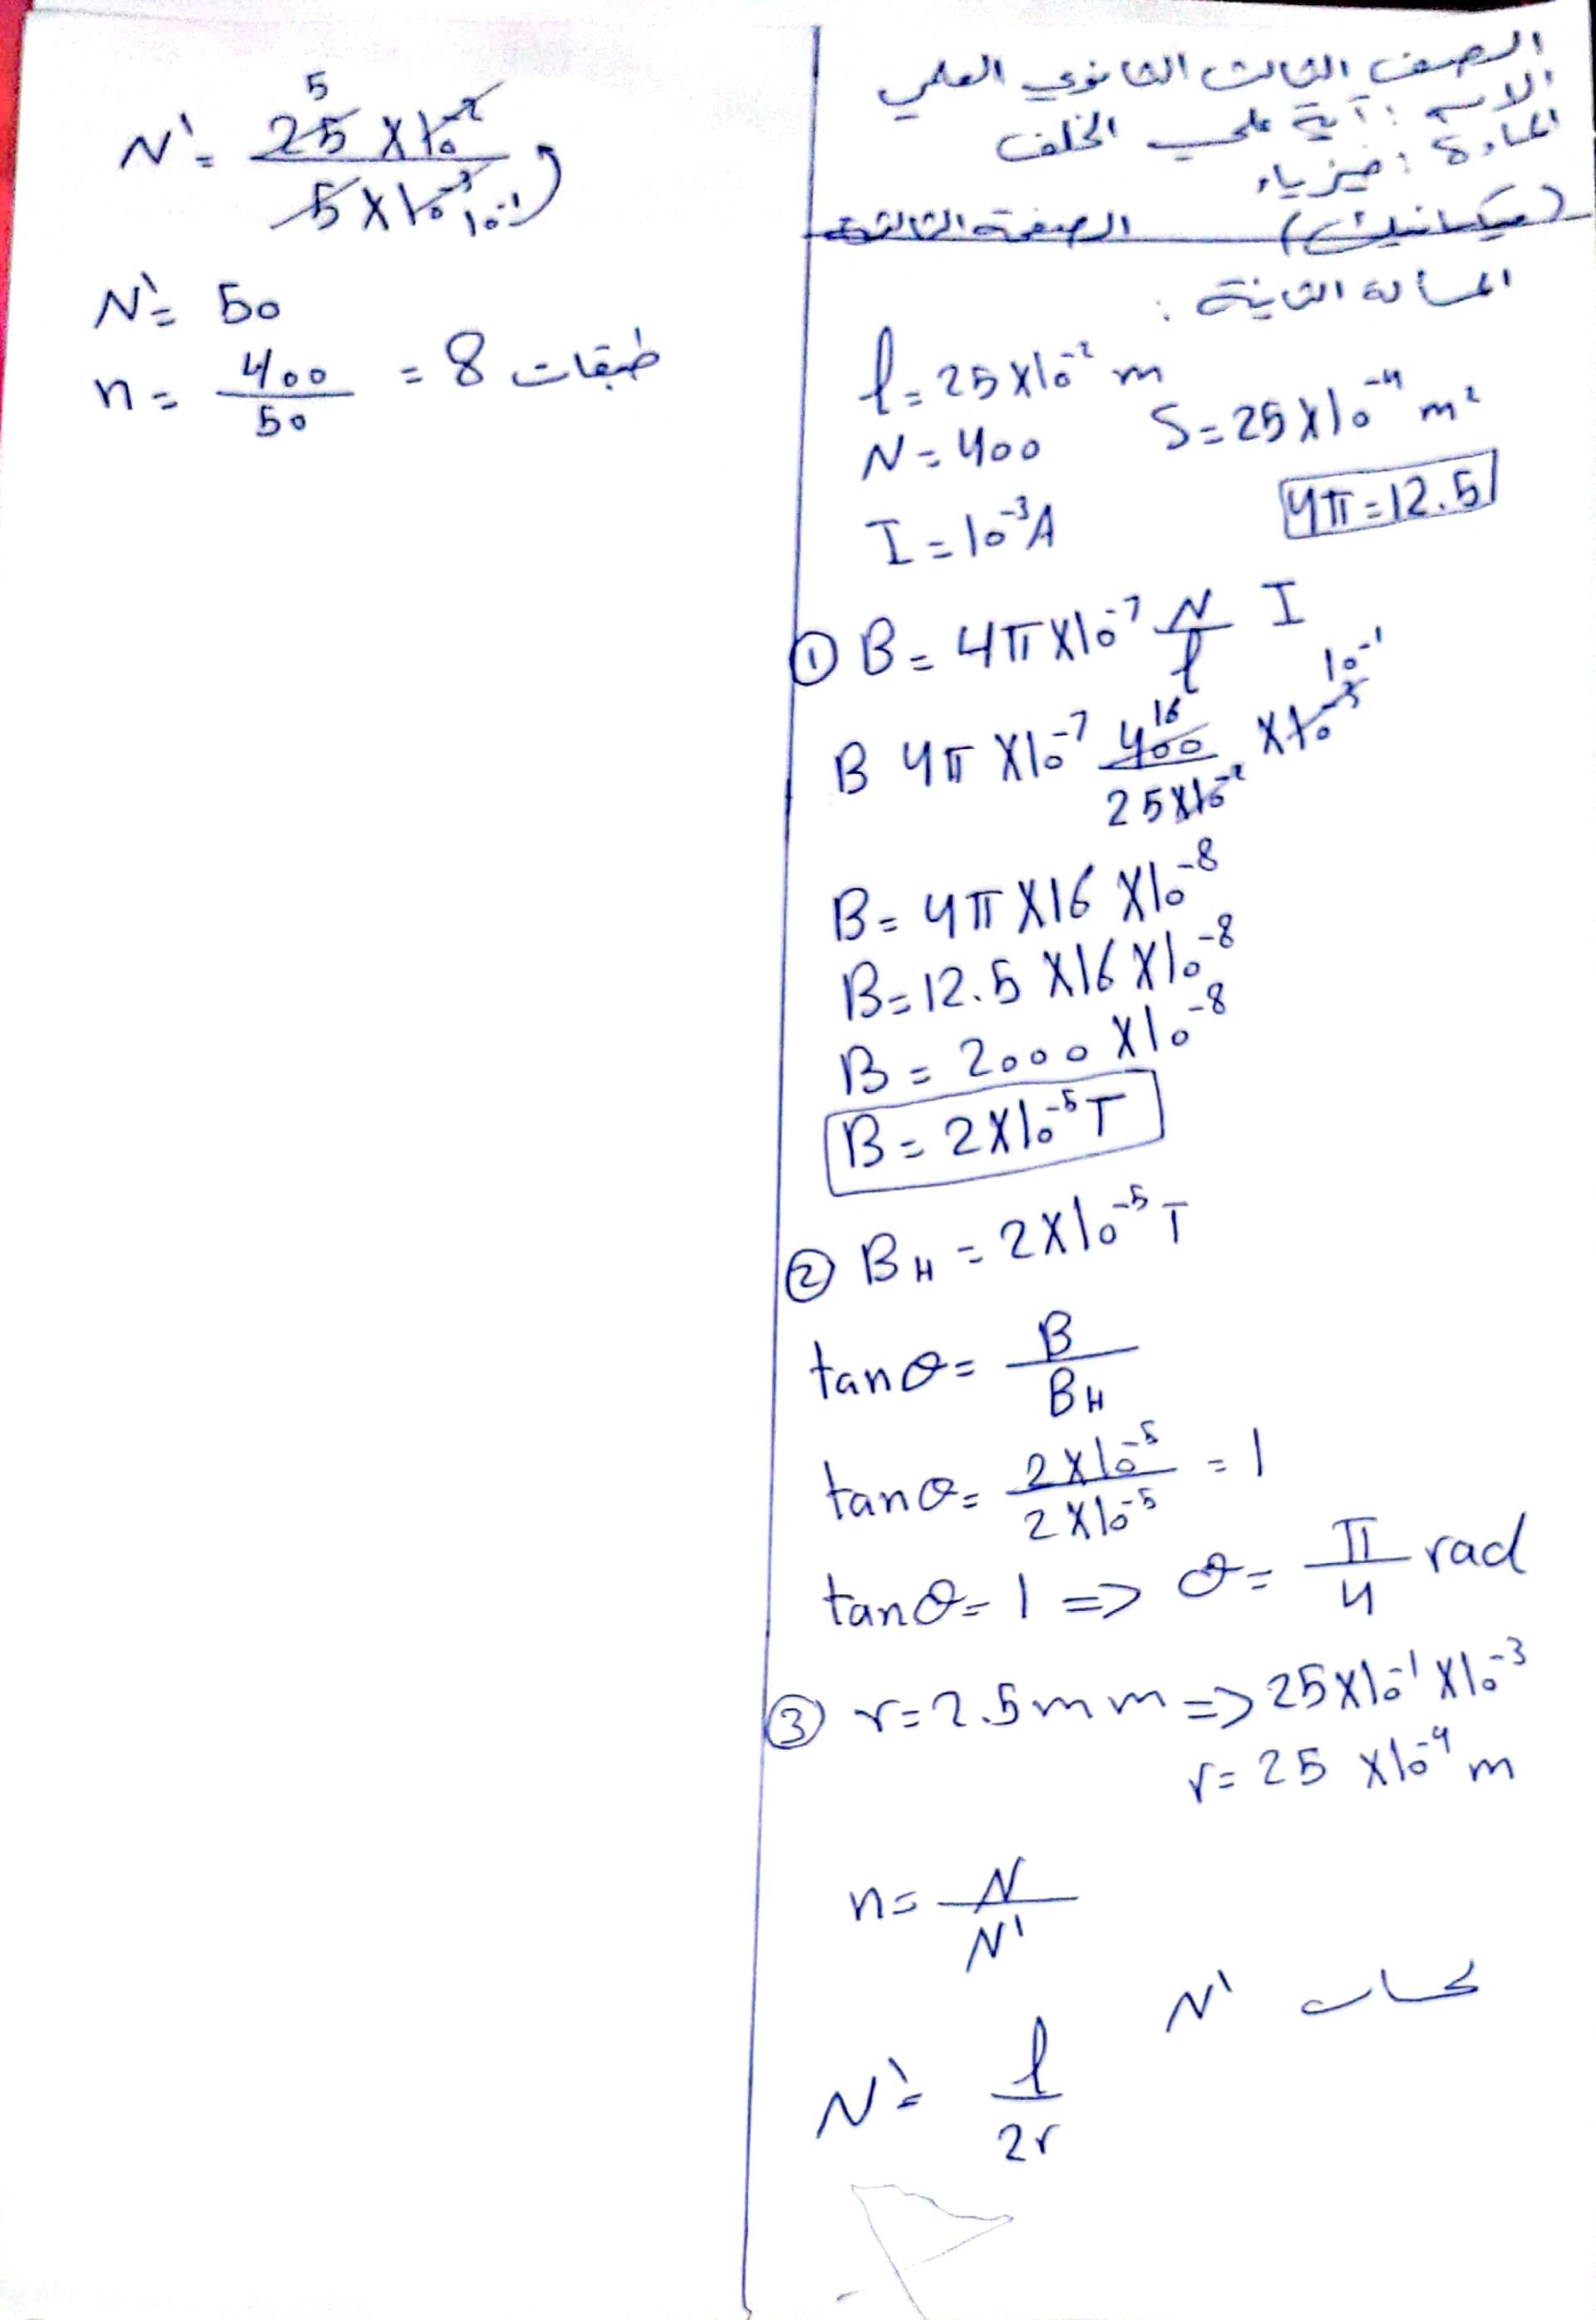 الصف الثالث الثانوي العلمي
الاسم : آية علي الخلف
المادة : فيزياء
(ميكانيك) الصفحة الثالثة
المسألة الثانية :
l = 25 × 10⁻² m
N = 400 S = 25 × 10⁻⁴ m²
I = 10⁻³ A 4π = 12.5
① B = 4π × 10⁻⁷ N/l I
B 4π × 10⁻⁷ 400/25×10⁻² × 10⁻³ 16 10⁻¹
B = 4π × 16 × 10⁻⁸
B = 12.5 × 16 × 10⁻⁸
B = 2000 × 10⁻⁸
B = 2 × 10⁻⁵ T
② B_H = 2 × 10⁻⁵ T
tan θ = B/B_H
tan θ = 2 × 10⁻⁵/2 × 10⁻⁵ = 1
tan θ = 1 => θ = π/4 rad
③ r = 2.5 mm => 25 × 10⁻¹ × 10⁻³
r = 25 × 10⁻⁴ m
n = N/N'
لحساب N'
N' = l/2r
N' = 25 × 10⁻²/5 × 10⁻³ 5 10⁻¹
N' = 50
n = 400/50 = 8 طبقات